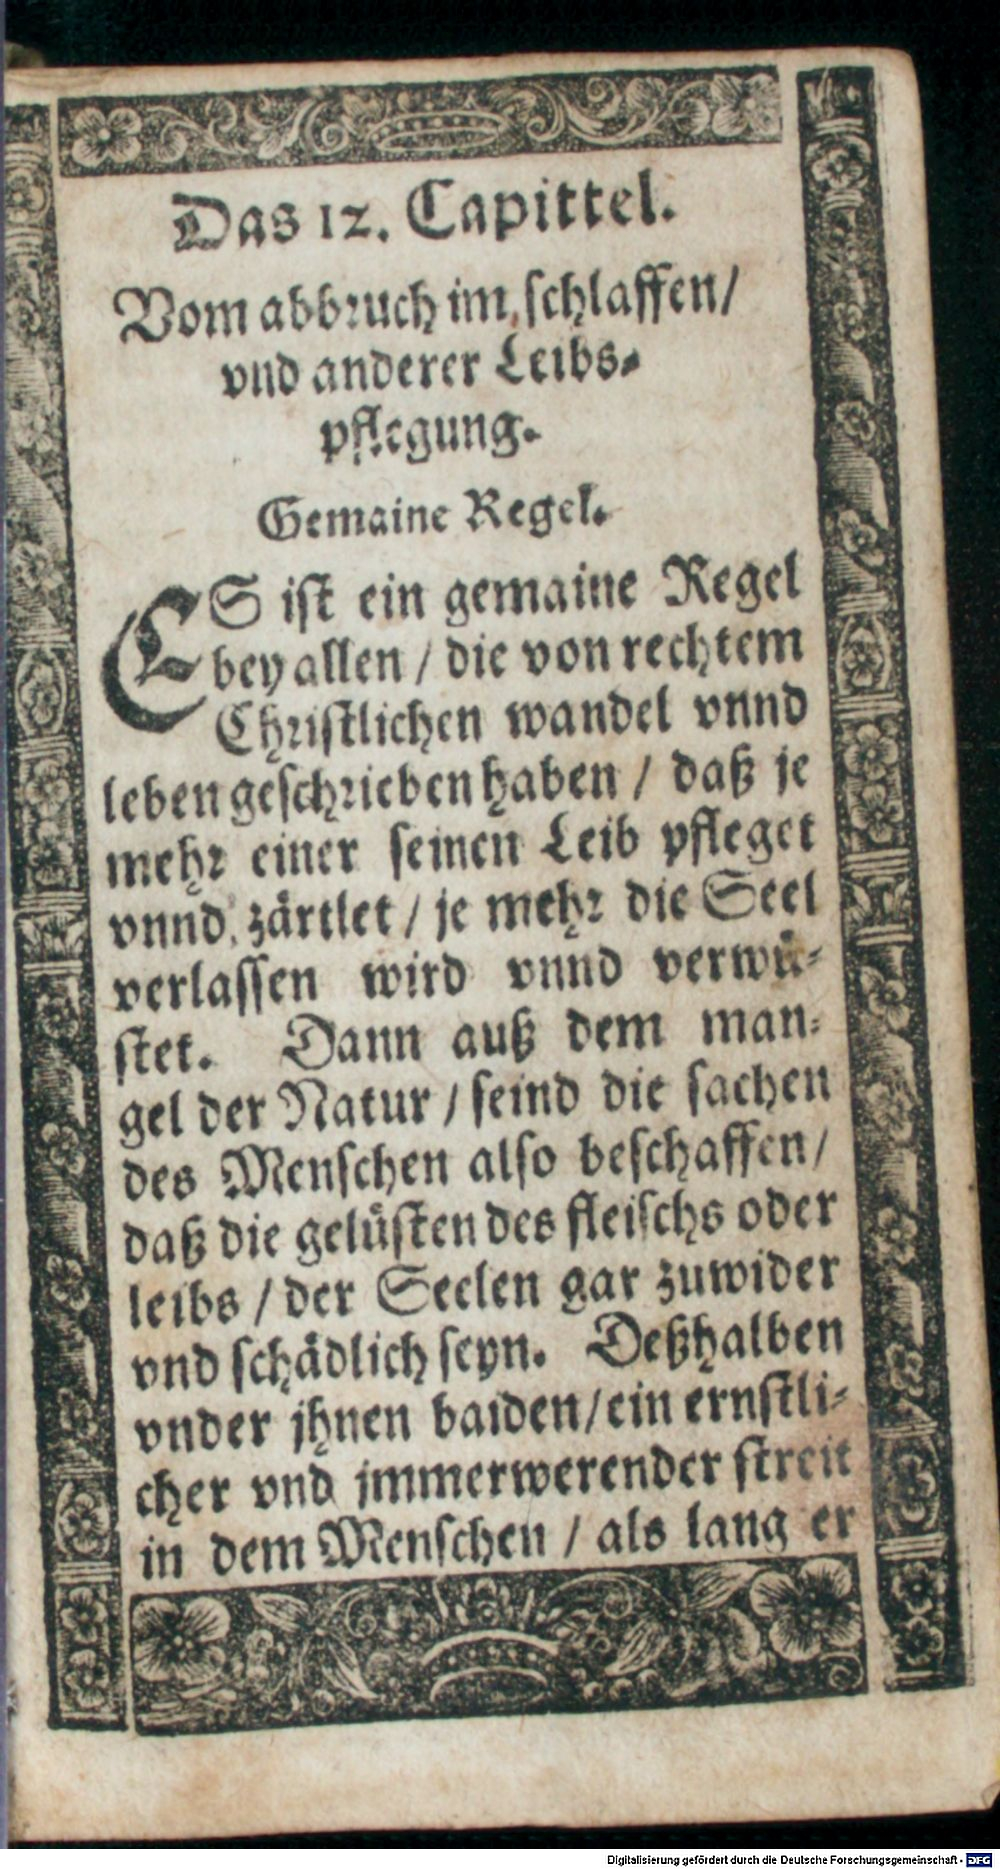 Das 12. Capittel.
Vom abbruch im schlaffen/
vnd anderer Leibs-
pflegung.
Gemaine Regel.
ES ist ein gemaine Regel
bey allen / die von rechtem
Christlichen wandel vnnd
leben geschrieben haben / daß je
mehr einer seinen Leib pfleget
vnnd zärtlet / je mehr die Seel
verlassen wird vnnd verwü-
stet. Dann auß dem man-
gel der Natur / seind die sachen
des Menschen also beschaffen/
daß die gelüsten des fleischs oder
leibs / der Seelen gar zuwider
vnd schädlich seyn. Deßhalben
vnder jhnen baiden/ein ernstli-
cher vnd jmmerwerender streit
in dem Menschen / als lang er
Digitalisierung gefördert durch die Deutsche Forschungsgemeinschaft - DFG